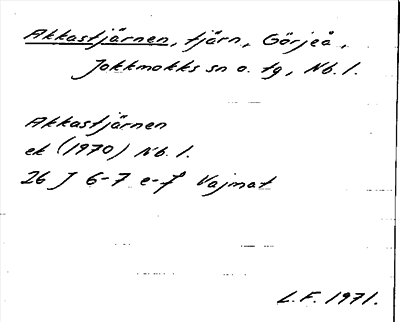 Akkastjärnen, tjärn, Görjeå,
Jokkmokks sn o. tg, Nb. l.
Akkastjärnen
ek (1970) Nb. l.
26 J 6-7 e-f Vajmat
L.F. 1971.